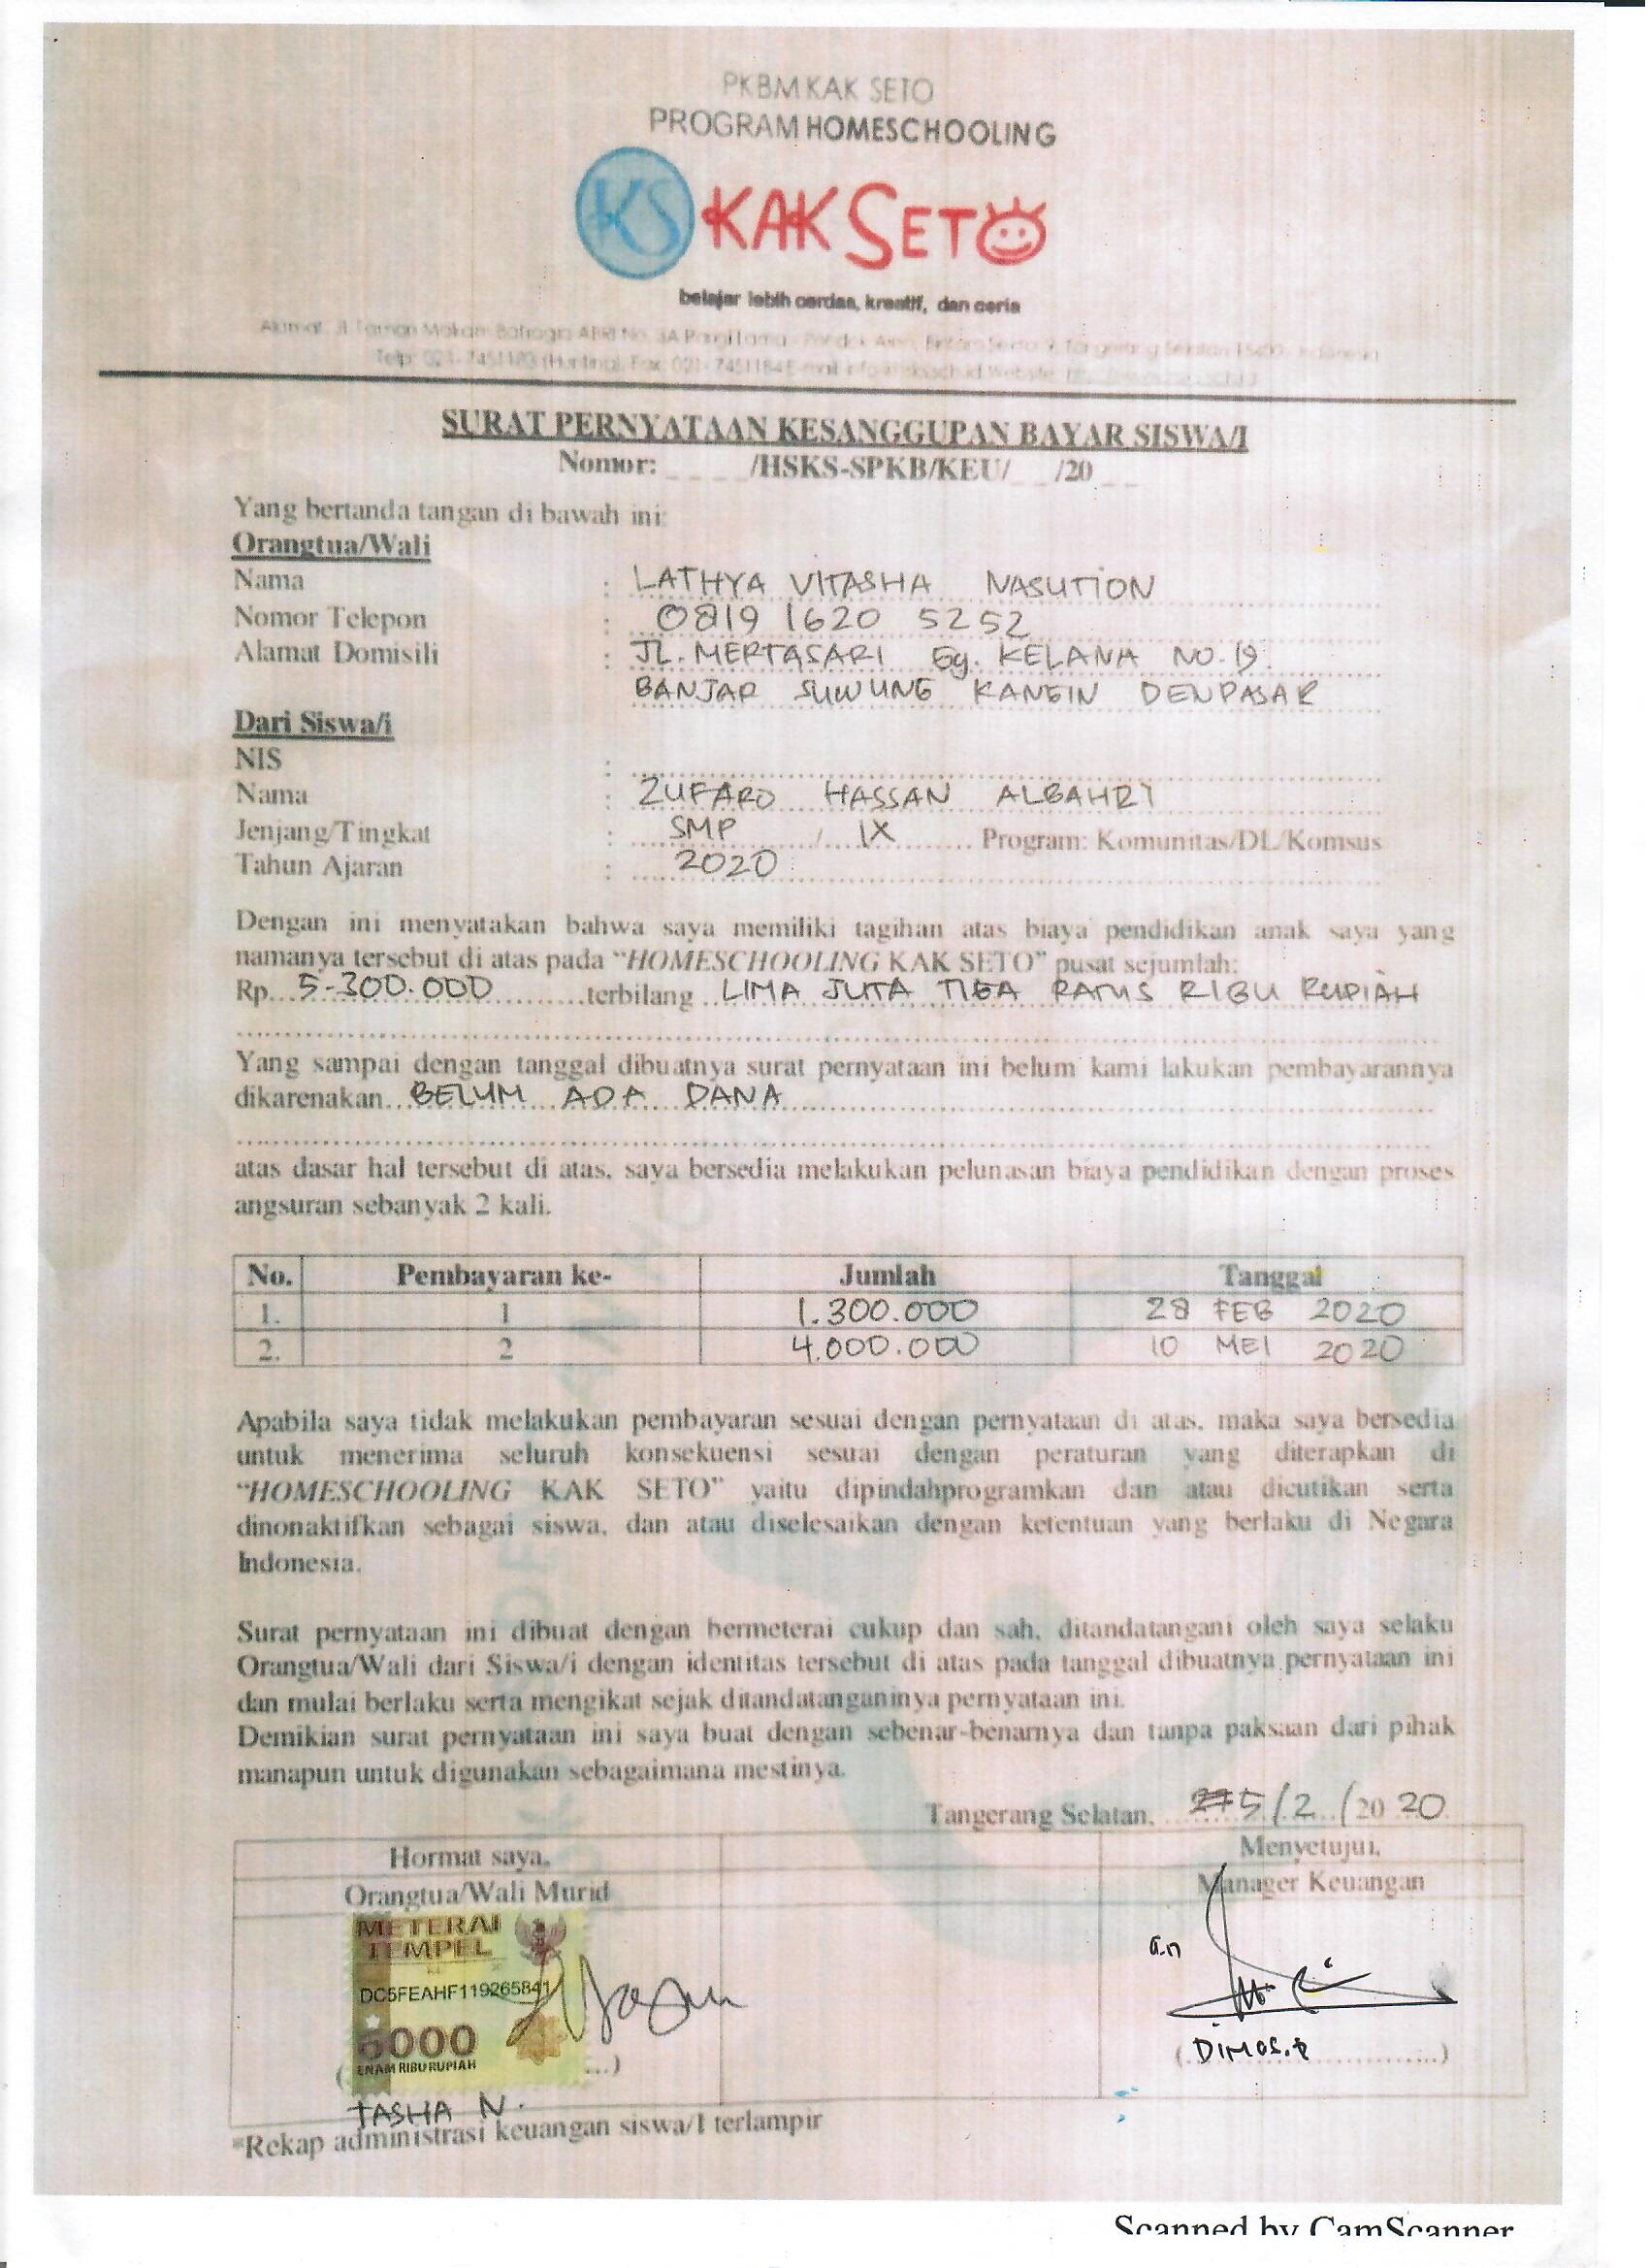 PKBM KAK SETO
PROGRAM HOMESCHOOLING
KS KAK SETO
belajar lebih cerdas, kreatif, dan ceria
Alamat: Jl. Taman Makam Bahagia ABRI No. 3A Parigi Lama - Pondok Aren, Bintaro Sektor 9, Tangerang Selatan 15400 - Indonesia
Telp: 021- 7451183 (Hunting), Fax: 021- 7451184 E-mail: Website:
SURAT PERNYATAAN KESANGGUPAN BAYAR SISWA/I
Nomor: _ _ _ _/HSKS-SPKB/KEU/_ _/20_ _
Yang bertanda tangan di bawah ini:
Orangtua/Wali
Nama : LATHYA VITASHA NASUTION
Nomor Telepon : 0819 1620 5252
Alamat Domisili : JL. MERTASARI Gg. KELANA NO. 19
BANJAR SUWUNG KANGIN DENPASAR
Dari Siswa/i
NIS :
Nama : ZUFARO HASSAN ALBAHRI
Jenjang/Tingkat : SMP / IX Program: Komunitas/DL/Komsus
Tahun Ajaran : 2020
Dengan ini menyatakan bahwa saya memiliki tagihan atas biaya pendidikan anak saya yang
namanya tersebut di atas pada “HOMESCHOOLING KAK SETO” pusat sejumlah:
Rp. 5.300.000 terbilang LIMA JUTA TIGA RATUS RIBU RUPIAH
Yang sampai dengan tanggal dibuatnya surat pernyataan ini belum kami lakukan pembayarannya
dikarenakan BELUM ADA DANA
atas dasar hal tersebut di atas, saya bersedia melakukan pelunasan biaya pendidikan dengan proses
angsuran sebanyak 2 kali.
No. Pembayaran ke- Jumlah Tanggal
1. 1 1.300.000 28 FEB 2020
2. 2 4.000.000 10 MEI 2020
Apabila saya tidak melakukan pembayaran sesuai dengan pernyataan di atas, maka saya bersedia
untuk menerima seluruh konsekuensi sesuai dengan peraturan yang diterapkan di
“HOMESCHOOLING KAK SETO” yaitu dipindahprogramkan dan atau dicutikan serta
dinonaktifkan sebagai siswa, dan atau diselesaikan dengan ketentuan yang berlaku di Negara
Indonesia.
Surat pernyataan ini dibuat dengan bermeterai cukup dan sah, ditandatangani oleh saya selaku
Orangtua/Wali dari Siswa/i dengan identitas tersebut di atas pada tanggal dibuatnya pernyataan ini
dan mulai berlaku serta mengikat sejak ditandatanganinya pernyataan ini.
Demikian surat pernyataan ini saya buat dengan sebenar-benarnya dan tanpa paksaan dari pihak
manapun untuk digunakan sebagaimana mestinya.
Tangerang Selatan, 5/2/2020
Hormat saya, Menyetujui,
Orangtua/Wali Murid Manager Keuangan
METERAI
TEMPEL
a.n
DC5FEAHF119265841
6000
ENAM RIBU RUPIAH
DIMAS.P
TASHA N.
*Rekap administrasi keuangan siswa/I terlampir
Scanned by CamScanner